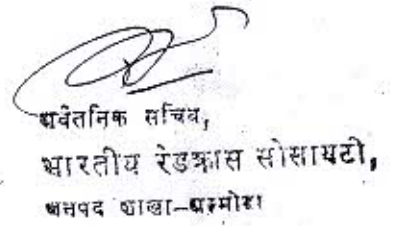 अवैतनिक सचिव,
भारतीय रेडक्रास सोसायटी,
जनपद शाखा-अल्मोडा